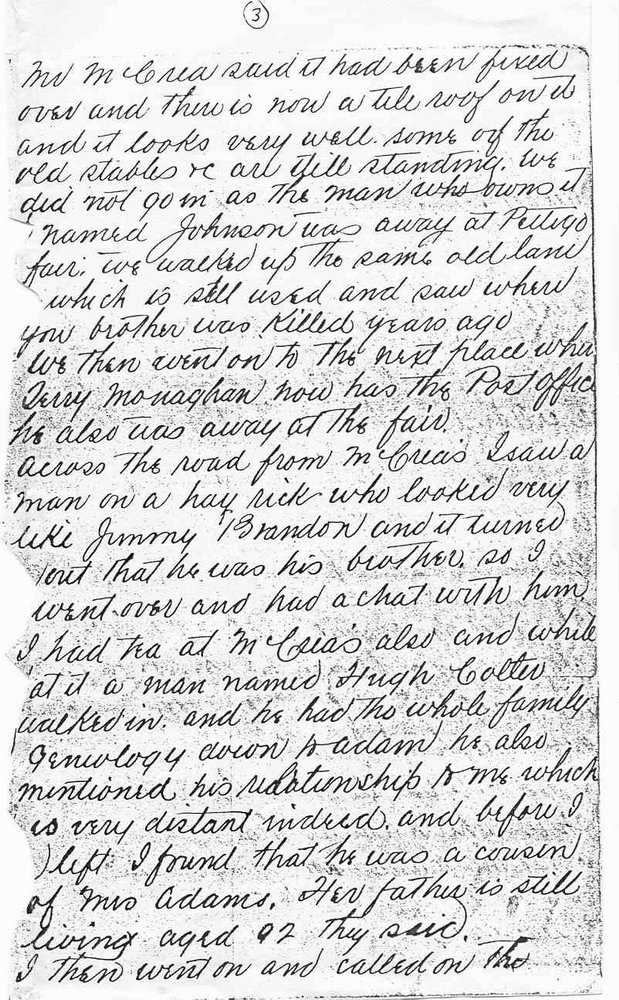 3
Mr McCrea said it had been fixed
over and there is now a tile roof on it
and it looks very well. some of the
old stables &c are still standing. we
did not go in as the man who owns it
named Johnson was away at Pettigo
fair. we walked up the same old lane
which is still used and saw where
you brother was killed years ago
We then went on to the next place where
Terry Monaghan now has the Post Office
he also was away at the fair.
across the road from McCrea's I saw a
man on a hay rick who looked very
like Jimmy Brandon and it turned
out that he was his brother. so I
went over and had a chat with him
I had tea at McCrea's also and while
at it a man named Hugh Colter
walked in. and he had the whole family
Geneology down to adam he also
mentioned his relationship to me which
is very distant indeed. and before I
left I found that he was a cousin
of Mrs Adams. Her father is still
living aged 92 they said.
I then went on and called on The